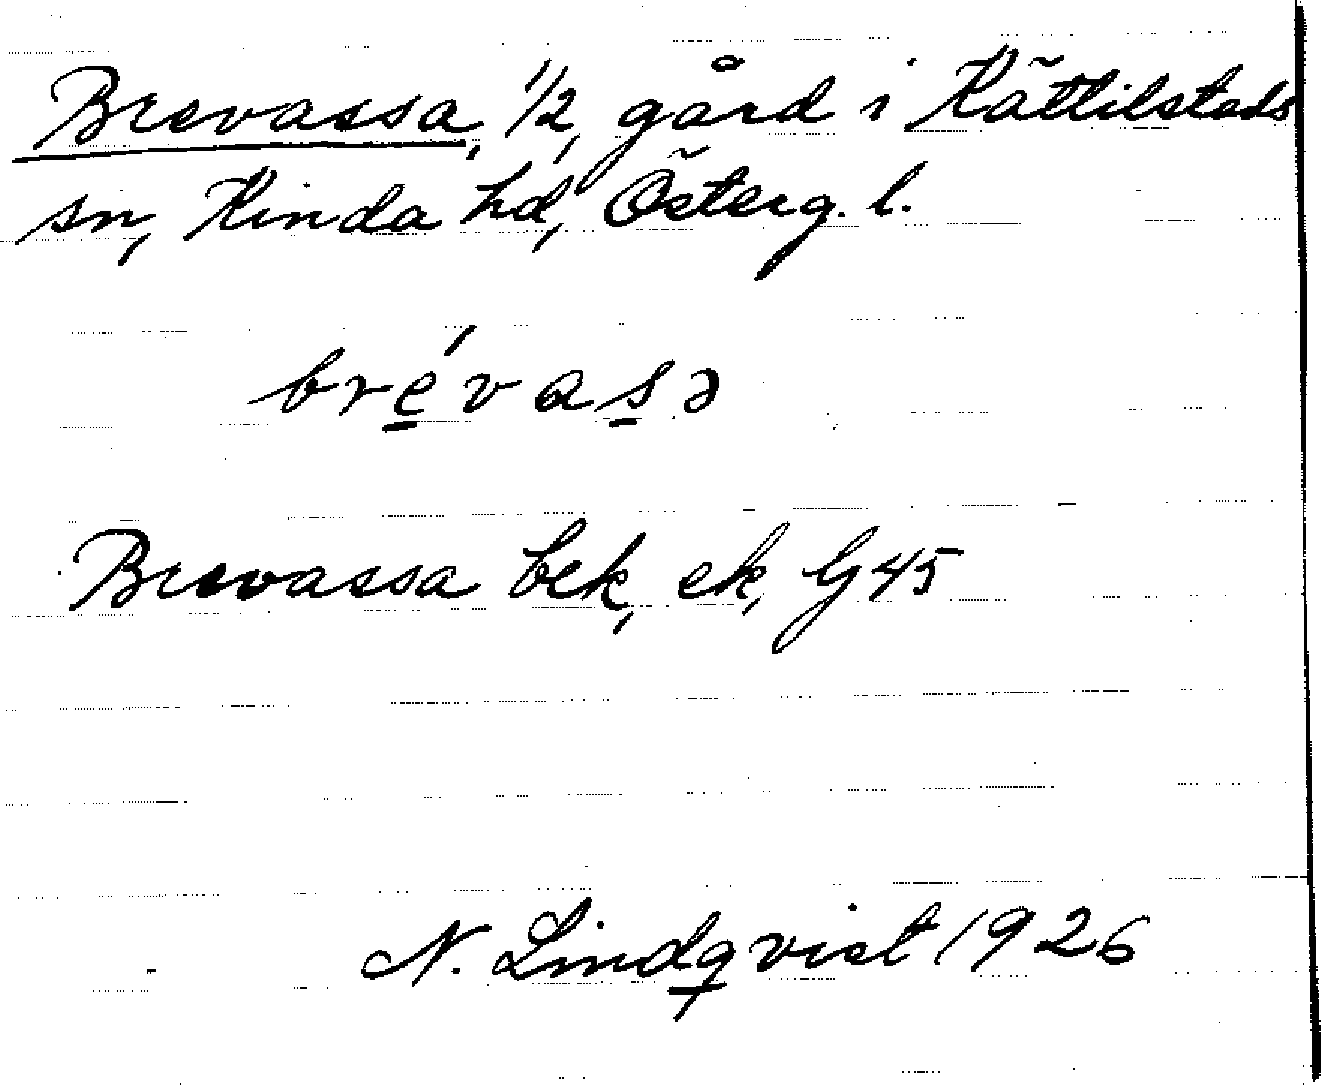 Brevassa, 1/2, gård i Kättilstads
sn, Kinda hd, Österg. l.
brévasə
Brevassa bek, ek, G 45
N. Lindqvist 1926